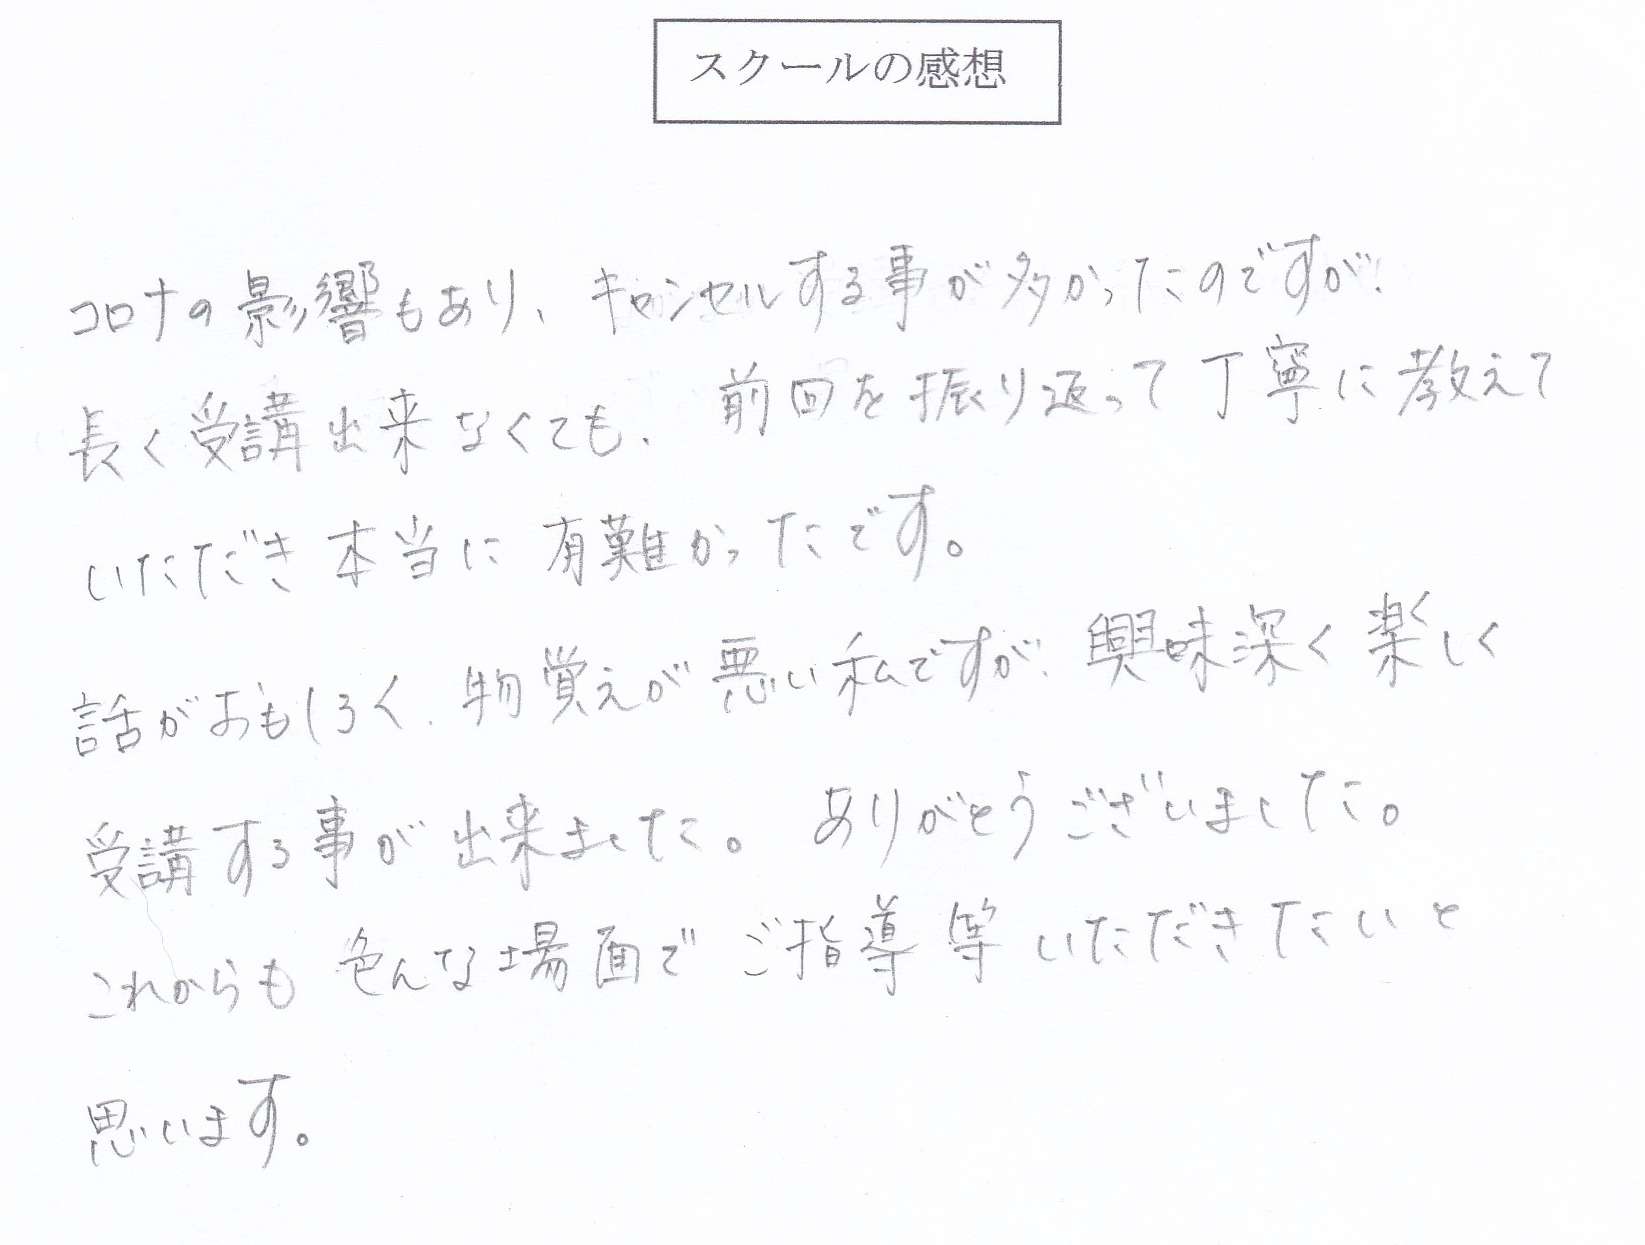 スクールの感想
コロナの影響もあり、キャンセルする事が多かったのですが、
長く受講出来なくても、前回を振り返って丁寧に教えて
いただき本当に有難かったです。
話がおもしろく、物覚えが悪い私ですが、興味深く楽しく
受講する事が出来ました。ありがとうございました。
これからも色んな場面でご指導等いただきたいと
思います。